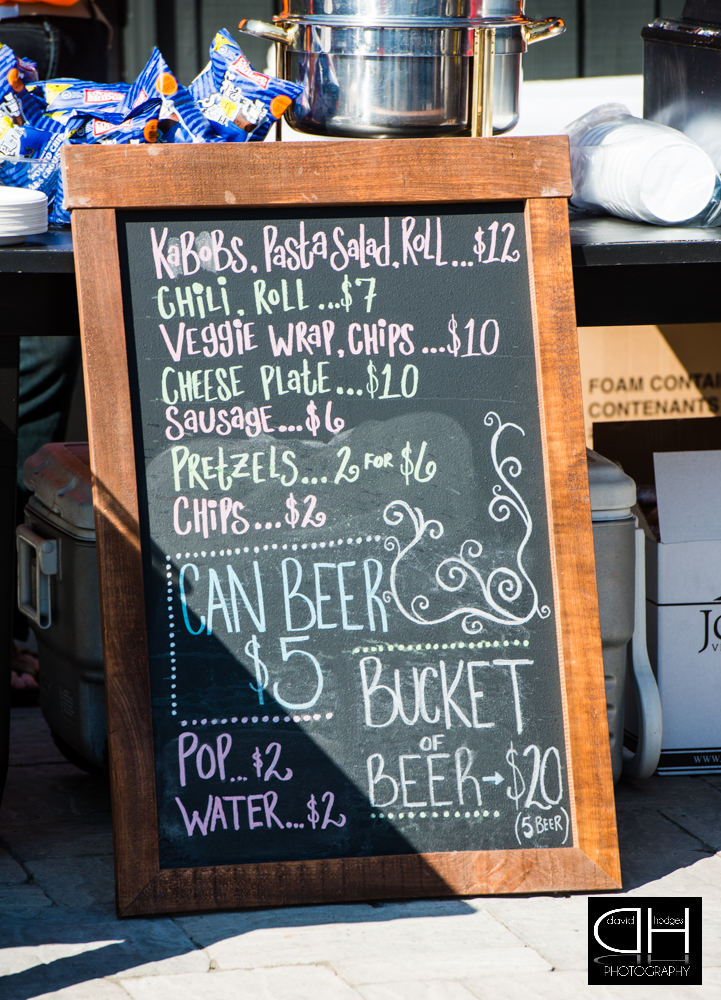 KaBoBs, Pasta Salad, Roll...$12
CHiLi, Roll ...$7
Veggie Wrap, Chips ...$10
Cheese Plate...$10
Sausage...$6
Pretzels...2 for $6
Chips...$2
CAN BEER
$5
BUCKET
OF
BEER→$20
(5 BEER)
POP...$2
WATER...$2
FOAM CONTA
CONTENANTS
JO
WWW
david hodges
DH
PHOTOGRAPHY